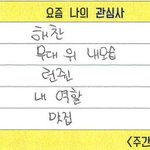 요즘 나의 관심사
해찬
무대 위 내모습
런쥔
내 역할
맛집
<주간